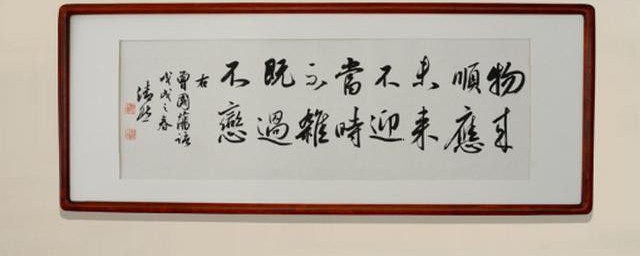 物来
順應
未来
不迎
當時
不雜
既過
不戀
右
曾國藩語
戊戌之春